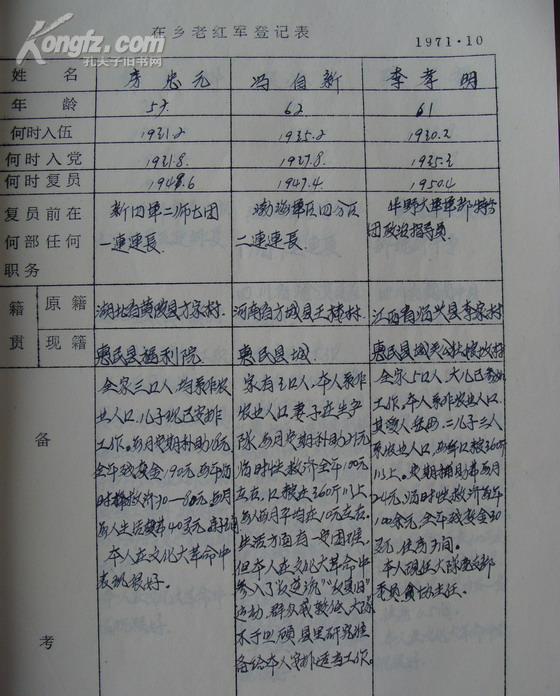 Kongfz.com
孔夫子旧书网
在乡老红军登记表
1971·10
姓名 房忠元 冯自新 李孝明
年龄 62 61
何时入伍 1931.2 1935.2 1930.2
何时入党 1931.8. 1937.8. 1935.3
何时复员 1948.6 1947.4. 1950.4
复员前在何部任何职务
新四军二师七团
一連連長
渤海軍区四分区
二連連長
华野大軍軍部特务
团政治指导员
籍贯 原籍 湖北省黄陂县方家村. 河南省方城县王楼村. 江西省临兴县李家村
现籍 惠民县福利院 惠民县城
备考
全家三口人,均系非农
业人口,儿子现已安排
工作。每月定期补助
全年残废金190元,每年临
时救济30—80元,每月
每人生活费 40多元。
本人在文化大革命中
表现很好。
家有3口人,本人系非
农业人口,妻子在生产
队,每月定期补助
临时性救济全年100元
左右,口粮在360斤以上
每人每月平均在10元左右。
生活方面有一定困难。
但本人在文化大革命中
参入了反逆流"反复旧"
运动,群众
本人安排适当工作。
全家5口人,大儿已安排
工作。本人系非农业人口,
二儿子三人
系农业人口,口粮360斤
以上。定期补助每月
24元,临时性救济每年
100余元,全年残废金30
多元,住房3间。
本人现任大队党支部
委员,主任。